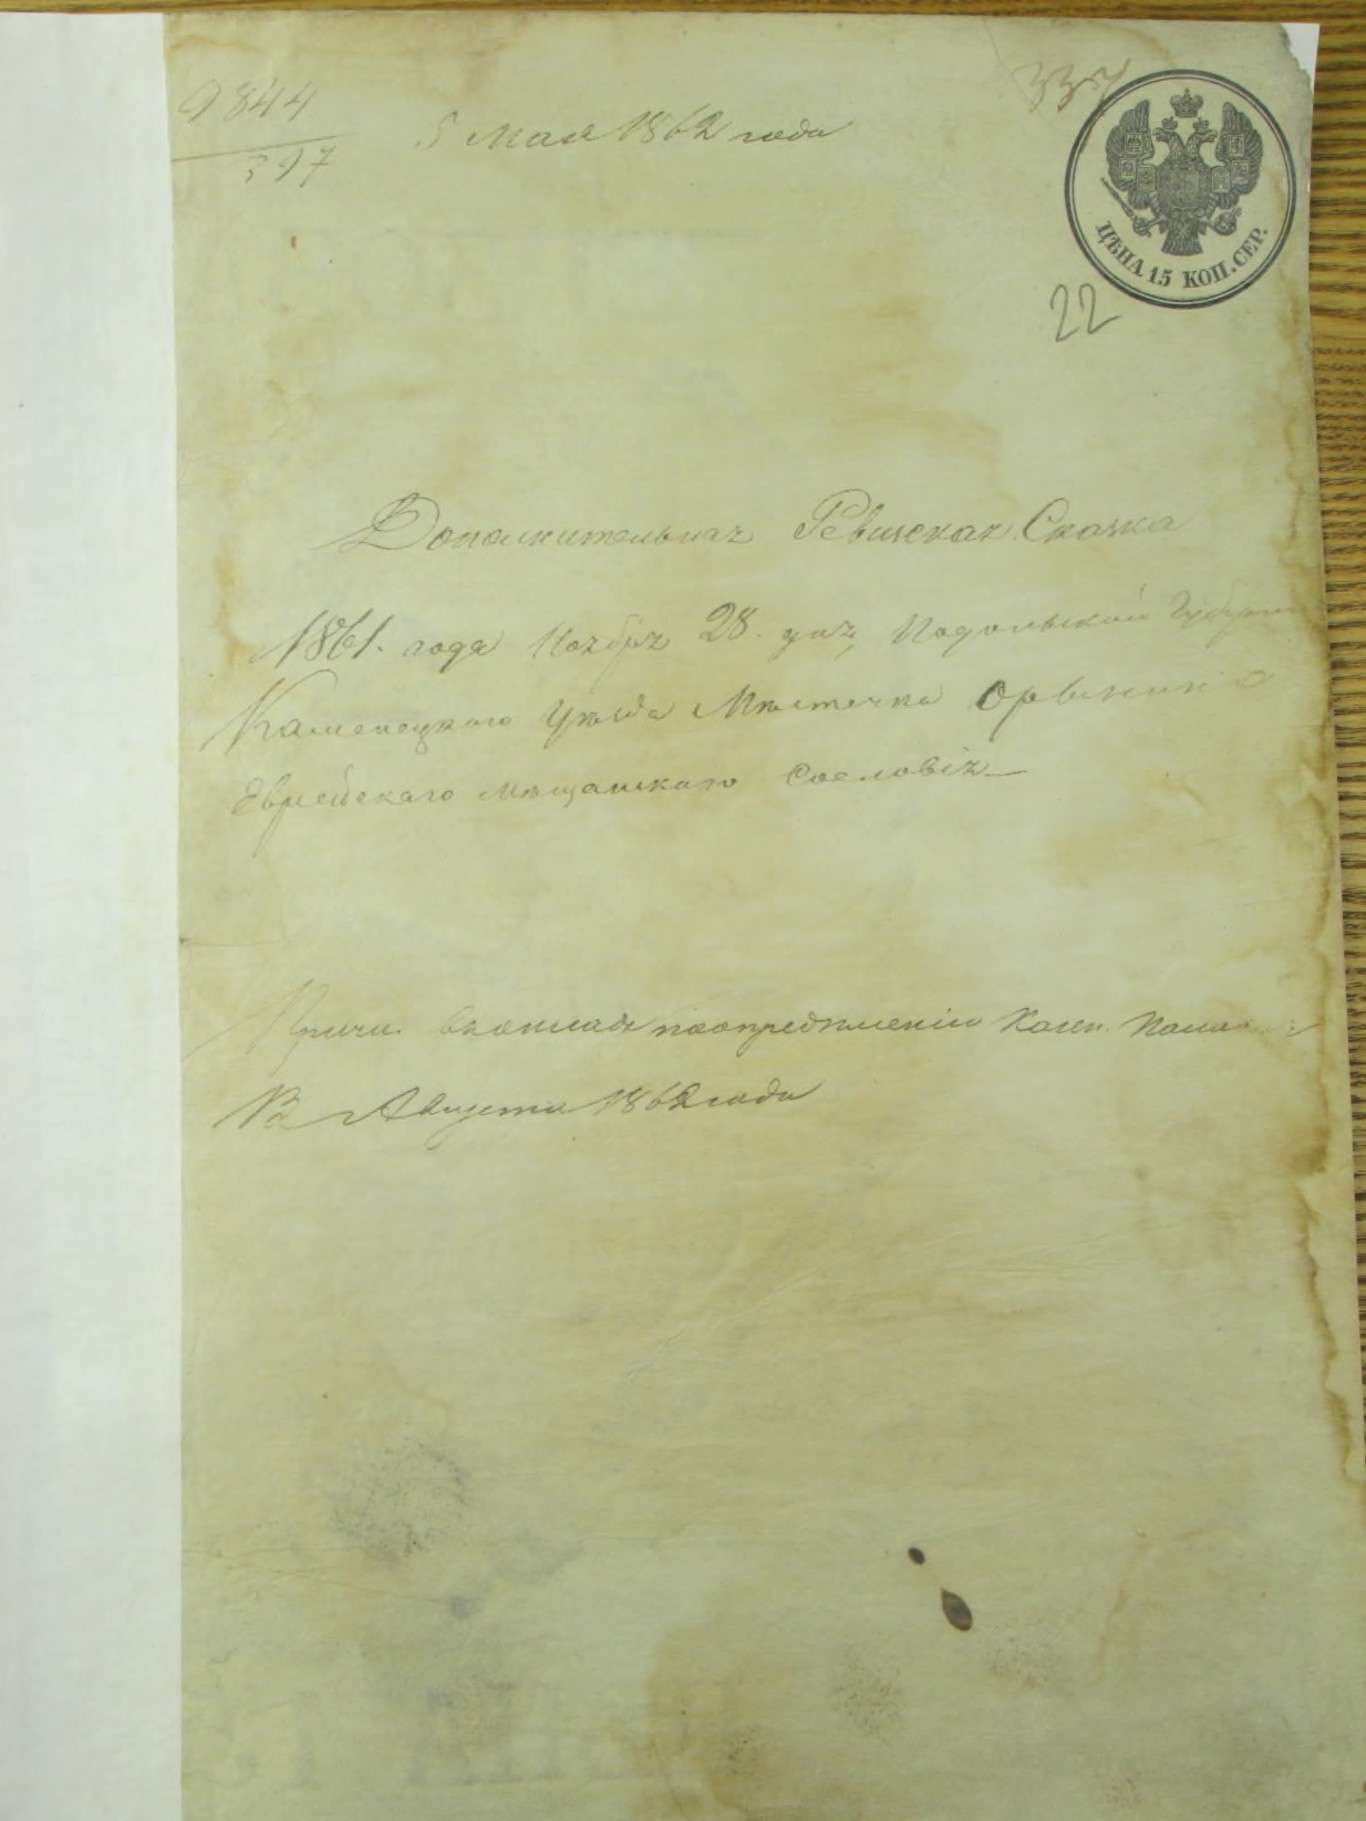 9844
397
5 Мая 1862 года
337
ЦѢНА 15 КОП. СЕР.
22
Дополнительная Ревизская Сказка
1861. года Ноября 28. дня, Подольской Губерн
Каменецкого Уѣзда Мѣстечка
Еврейскаго мѣщанскаго Сословія
Причи. въ окладъ по опредѣленію Казен.
Августа 1862 года